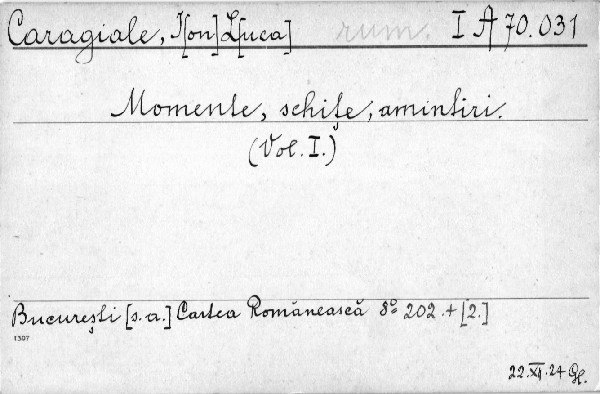 Caragiale, I[on] L[uca] rum. I A 70.031
Momente, schiţe, amintiri.
(Vol. I.)
Bucureşti [s. a.] Cartea Românească 8° 202 + [2.]
1307
22. XII. 24